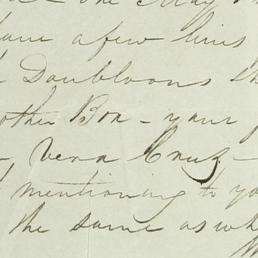 one May
have a few lines
Doubloons
other Box - your
Vera Cruz -
mentioning to yo
the same as wh